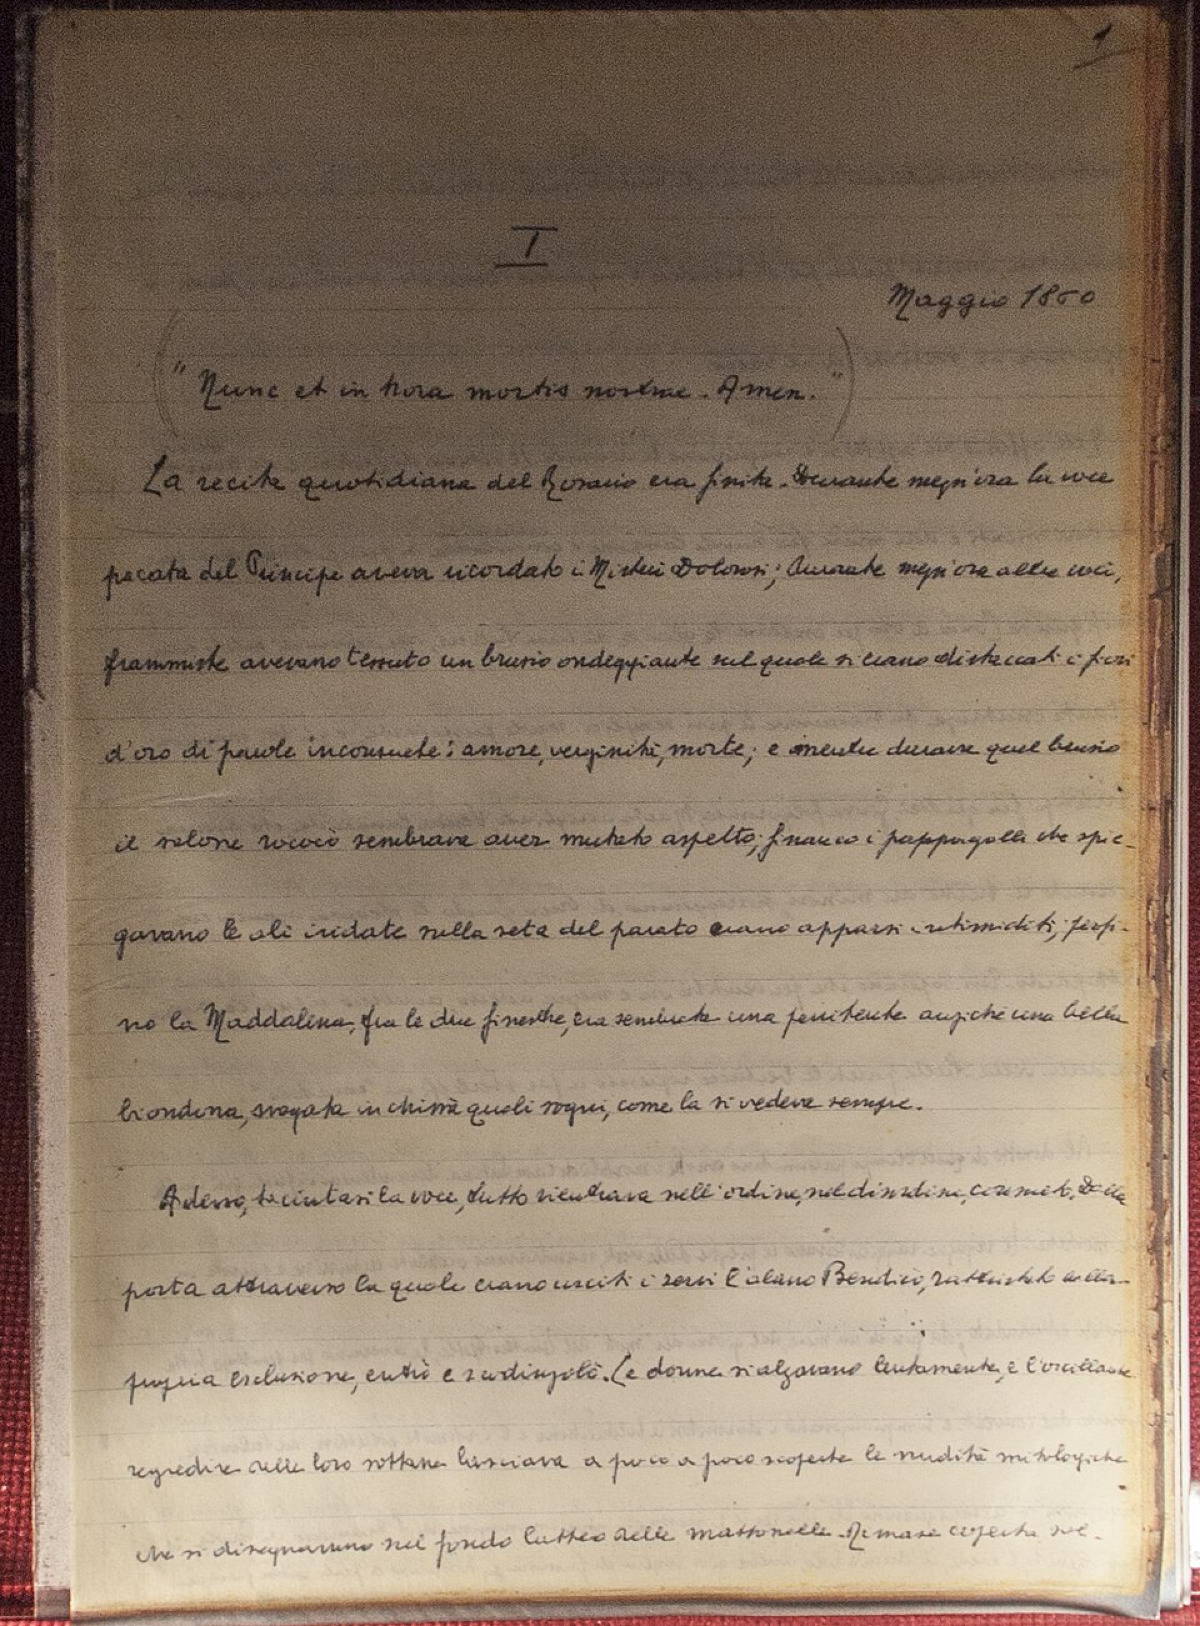 1
I
Maggio 1860
("Nunc et in hora mortis nostrae. Amen.")
La recita quotidiana del Rosario era finita. Durante mezz'ora la voce
pacata del Principe aveva ricordato i Misteri Dolorosi; durante mezz'ora altre voci,
frammiste avevano tessuto un brusio ondeggiante sul quale si erano distaccati i fiori
d'oro di parole inconsuete: amore, verginità, morte; e mentre durava quel brusio
il salone rococò sembrava aver mutato aspetto; financo i pappagalli che spie-
gavano le ali iridate sulla seta del parato erano apparsi intimiditi; perfi-
no la Maddalena, fra le due finestre, era sembrata una penitente anziché una bella
biondona, svagata in chissà quali sogni, come la si vedeva sempre.
Adesso, taciutasi la voce, tutto rientrava nell'ordine, nel disordine, consueto. Dalla
porta attraverso la quale erano usciti i servi l'alano Bendicò, rattristato della
propria esclusione, entrò e scodinzolò. Le donne si alzavano lentamente, e l'oscillante
regredire delle loro sottane lasciava a poco a poco scoperte le nudità mitologiche
che si disegnavano sul fondo latteo delle mattonelle. Rimase coperta sol-